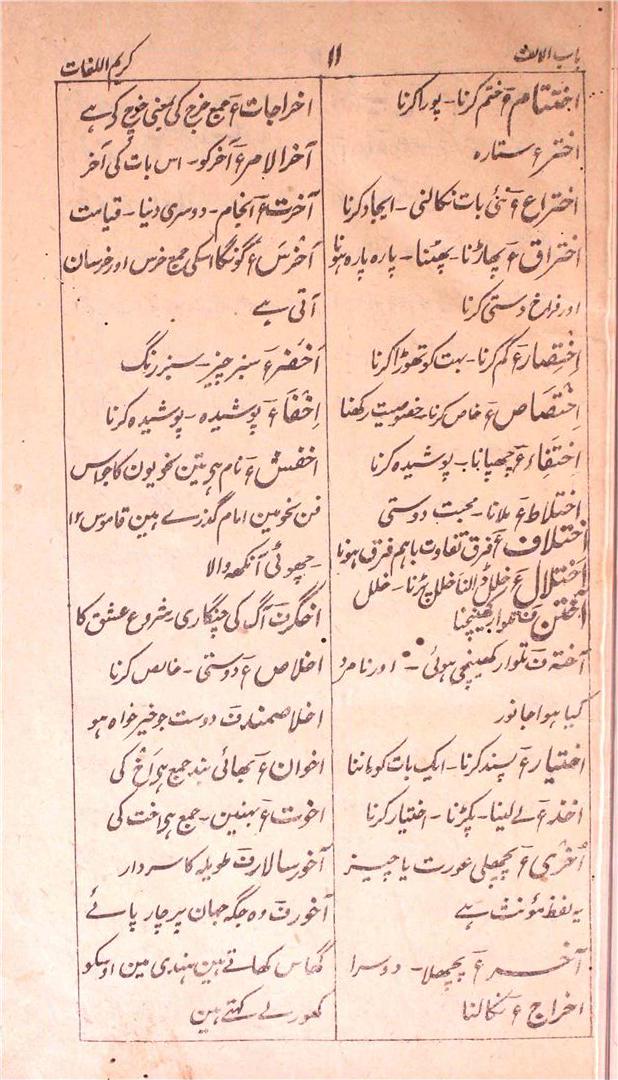 باب الالف
۱۱
کریم اللغات
اختتام ع ختم کرنا۔ پورا کرنا
اختر ع ستارہ
اختراع ع نئی بات نکالنی۔ ایجاد کرنا
اختراق ع پھاڑنا۔ پھٹنا۔ پارہ پارہ ہونا
اور فراخ دستی کرنا
اِختِصار ع کم کرنا۔ بہت کو تھوڑا کرنا
اِختِصَاص ع خاص کرنا۔ خصوصیت رکھنا
اِختِفَاء ع چھپانا۔ پوشیدہ کرنا
اختلاط ع ملانا۔ محبت دوستی
اختلاف ع فرق تفاوت باہم فرق ہونا
اختلال ع خلل ڈالنا خلل پڑنا۔ خلل
آختن ف تلوار کھینچنا
آختہ ف تلوار کھینچی ہوئی۔ اور نامرد
کیا ہوا جانور
اختیار ع پسند کرنا۔ ایک بات کو ماننا
اخذ ع لے لینا۔ پکڑنا۔ اختیار کرنا
اُخریٰ ع پچھلی عورت یا چیز
یہ لفظ مؤنث ہے
آخر ع پچھلا۔ دوسرا
اخراج ع نکالنا
اخراجات ع جمع خرج کی بمعنی خرچ کے ہے
آخر الامر ع آخر کو۔ اس بات کی آخر
آخرت ع انجام۔ دوسری دنیا۔ قیامت
اَخرَس ع گونگا اسکی جمع خرس اور خرسان
آتی ہے
اَخضَر ع سبز چیز۔ سبز رنگ
اِخفَاء ع پوشیدہ۔ پوشیدہ کرنا
اخفش ع نام ہی تین نحویون کا جو اس
فن نحو مین امام گذرے ہین قاموس ۱۲
۔چھوٹی آنکھ والا
اخگر ف آگ کی چنگاری۔ شروع عشق کا
اخلاص ع دوستی۔ خالص کرنا
اخلاصمند ف دوست جو خیر خواہ ہو
اخوان ع بھائی بند جمع ہی اَخ کی
اخوت ع بہنین۔ جمع ہی اخت کی
آخور سالار ف طویلہ کا سردار
آخور ف وہ جگہ جہان پر چار پائے
گھاس کھاتے ہین ہندی مین اوسکو
کھورلے کہتے ہین